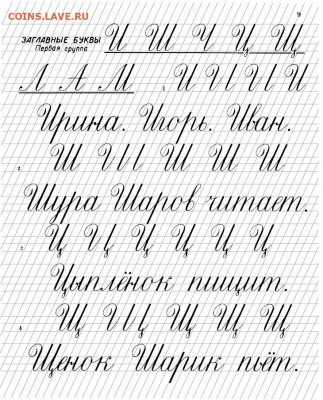 COINS.LAVE.RU
9
ЗАГЛАВНЫЕ БУКВЫ И Ш Ч Ц Щ
Первая группа
Л А М 1 И И И И
Ирина. Игорь. Иван.
2 Ш И И Ш Ш Ш
Шура Шаров читает.
3 Ц И Ц Ц Ц Ц Ц
Цыплёнок пищит.
4 Щ И Ц Щ Щ Щ
Щенок Шарик пьёт.